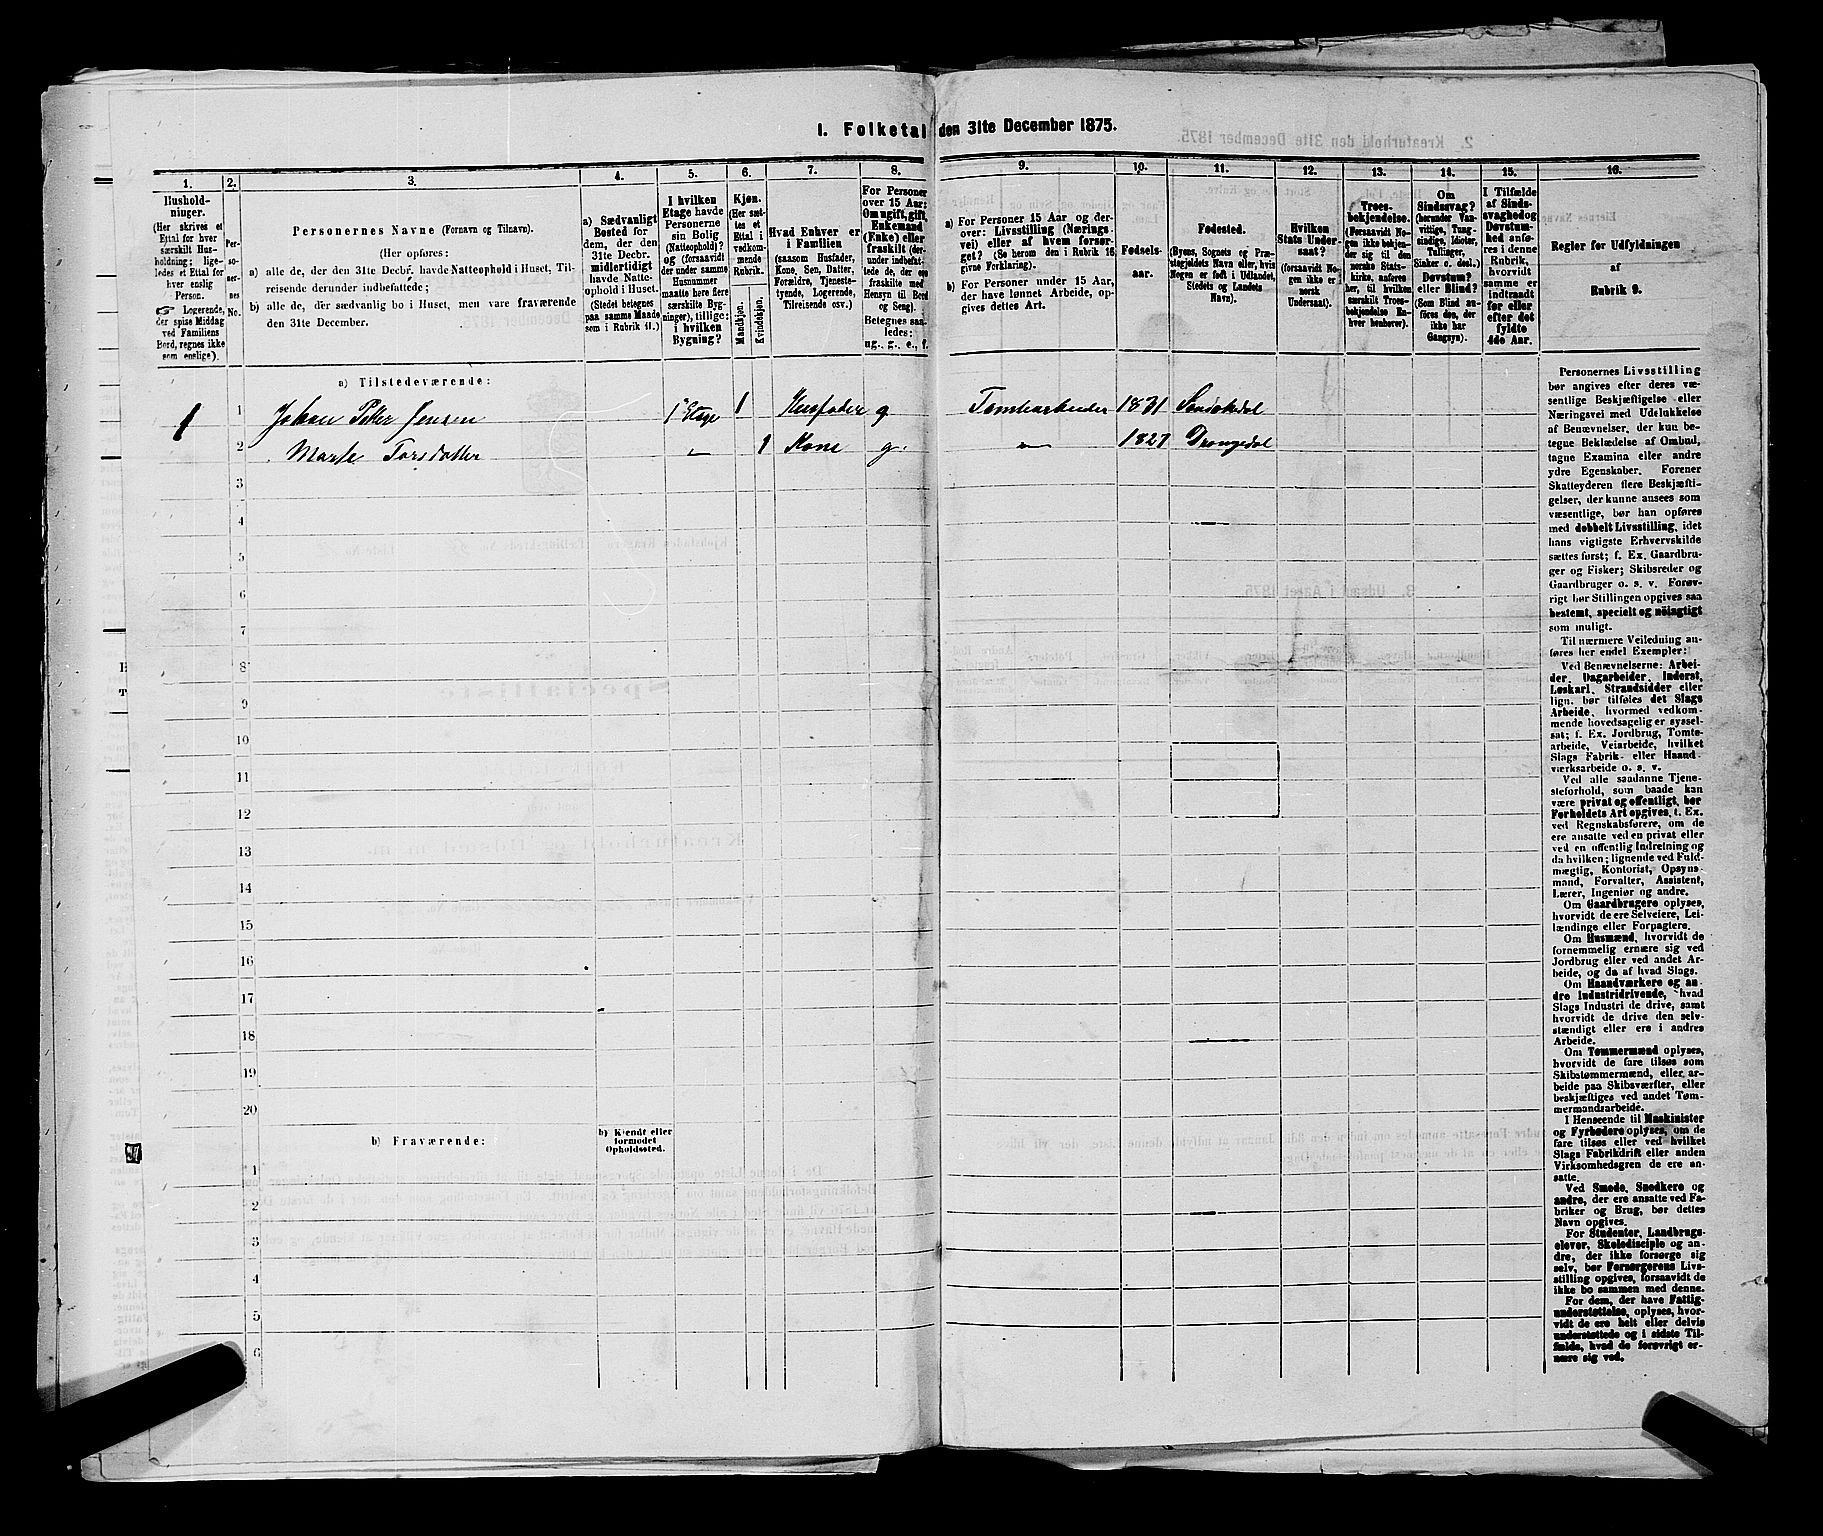 1. Folketal den 31te December 1875.
1.
2.
3.
4.
5.
6.
7.
8.
9.
10.
11.
12.
13.
14.
15.
16.
Hushold-
ninger.
(Her skrives et
Ettal for hver
særskilt Hus-
holdning; lige-
ledes et Ettal for
hver enslig
Person.
☛ Logerende,
der spise Middag
ved Familiens
Bord, regnes ikke
som enslige).
Per-
so-
ner-
nes
No.
Personernes Navne (Fornavn og Tilnavn).
(Her opføres:
a) alle de, der den 31te Decbr. havde Natteophold i Huset, Til-
reisende derunder indbefattede;
b) alle de, der sædvanlig bo i Huset, men vare fraværende
den 31te December.
a) Sædvanligt
Bosted for
dem, der den
31te Decbr.
midlertidigt
havde Natte-
ophold i Huset.
(Stedet betegnes
paa samme Maade
som i Rubrik 11.)
I hvilken
Etage havde
Personerne
sin Bolig
(Natteophold)?
og (forsaavidt
der under samme
Husnummer
maatte være flere
særskilte Byg-
ninger), tillige:
i hvilken
Bygning?
Kjøn.
(Her sæt-
tes et
Ettal i
vedkom-
mende
Rubrik.
Mandkjøn.
Kvindekjøn.
Hvad Enhver er
i Familien
(saasom Husfader,
Kone, Søn, Datter,
Forældre, Tjeneste-
tyende, Logerende,
Tilreisende osv.)
For Personer
over 15 Aar:
Om ugift, gift,
Enkemand
(Enke) eller
fraskilt (der-
under indbefat-
tede de, der ere
fraskilte med
Hensyn til Bord
og Seng).
Betegnes saa-
ledes:
ug., g., e., f.
a) For Personer 15 Aar og der-
over: Livsstilling (Nærings-
vei) eller af hvem forsør-
get? (Se herom den i Rubrik 16
givne Forklaring).
b) For Personer under 15 Aar,
der have lønnet Arbeide, op-
gives dettes Art.
Fødsels-
aar.
Fødested.
(Byens, Sognets og Præ-
stegjeldets Navn eller, hvis
Nogen er født i Udlandet,
Stedets og Landets
Navn).
Hvilken
Stats Under-
saat?
(forsaavidt No-
gen ikke er
norsk
Undersaat).
Troes-
bekjendelse.
(Forsaavidt No-
gen ikke bekjen-
der sig til den
norske Stats-
kirke, anføres
her, til hvilken
særskilt Troes-
bekjendelse En-
hver henhører).
Om
Sindssvag?
(herunder Van-
vittige, Tung-
sindige, Idioter,
Tullinger,
Sinker o. desl.)
Døvstum?
eller Blind?
(Som Blind an-
føres den, der
ikke har
Gangsyn).
I Tilfælde
af Sinds-
svaghed og
Døvstum-
hed anfø-
res i denne
Rubrik,
hvorvidt
samme er
indtraadt
før eller
efter det
fyldte
4de Aar.
Regler for Udfyldningen
af
Rubrik 9.
a) Tilstedeværende:
1 1 Johan Petter Jensen 1 Etage 1 Husfader g Tomtearbeider 1831 Sandøkdal
2 Marte Torsdatter " 1 Kone g. " 1827 Drangedal
3
4
5
6
7
8
9
10
11
12
13
14
15
16
17
18
19
20
b) Fraværende:
b) Kjendt eller
formodet
Opholdssted.
1
2
3
4
5
6
Personernes Livsstilling
bør angives efter deres væ-
sentlige Beskjæftigelse eller
Næringsvei med Udelukkelse
af Benævnelser, der kun be-
tegne Beklædelse af Ombud,
tagne Examina eller andre
ydre Egenskaber. Forener
Skatteyderen flere Beskjæfti-
gelser, der kunne ansees som
væsentlige, bør han opføres
med dobbelt Livsstilling, idet
hans vigtigste Erhvervskilde
sættes først; f. Ex. Gaardbru-
ger og Fisker; Skibsreder og
Gaardbruger o. s. v. Forøv-
rigt bør Stillingen opgives saa
bestemt, specielt og nøiagtigt
som muligt.
Til nærmere Veiledning an-
føres her endel Exempler:
Ved Benævnelserne: Arbei-
der, Dagarbeider, Inderst,
Løskarl, Strandsidder eller
lign. bør tilføies det Slags
Arbeide, hvormed vedkom-
mende hovedsagelig er syssel-
sat; f. Ex. Jordbrug, Tomte-
arbeide, Veiarbeide, hvilket
Slags Fabrik- eller Haand-
værksarbeide o. s. v.
Ved alle saadanne Tjene-
steforhold, som baade kan
være privat og offentligt, bør
Forholdets Art opgives, f. Ex.
ved Regnskabsførere, om de
ere ansatte ved en privat eller
ved en offentlig Indretning og
da hvilken; lignende ved Fuld-
mægtig, Kontorist, Opsyns-
mand, Forvalter, Assistent,
Lærer, Ingeniør og andre.
Om Gaardbrugere oplyses,
hvorvidt de ere Selveiere, Lei-
lændinge eller Forpagtere.
Om Husmænd, hvorvidt de
fornemmelig ernære sig ved
Jordbrug eller ved andet Ar-
beide, og da af hvad Slags.
Om Haandværkere og an-
dre Industridrivende, hvad
Slags Industri de drive, samt
hvorvidt de drive den selv-
stændigt eller ere i andres
Arbeide.
Om Tømmermænd oplyses,
hvorvidt de fare tilsøs som
Skibstømmermænd, eller ar-
beide paa Skibsværfter, eller
beskjæftiges ved andet Tøm-
mermandsarbeide.
I Henseende til Maskinister
og Fyrbødere oplyses, om de
fare tilsøs eller ved hvilket
Slags Fabrikdrift eller anden
Virksomhedsgren de ere an-
satte.
Ved Smede, Snedkere og
andre, der ere ansatte ved Fa-
briker og Brug, bør dettes
Navn opgives.
For Studenter, Landbrugs-
elever, Skoledisciple og an-
dre, der ikke forsørge sig
selv, bør Forsørgerens Livs-
stilling opgives, forsaavidt de
ikke bo sammen med denne.
For dem, der have Fattig-
understøttelse, oplyses, hvor-
vidt de ere helt eller delvis
understøttede og i sidste Til-
fælde, hvad de forøvrigt er-
nære sig ved.